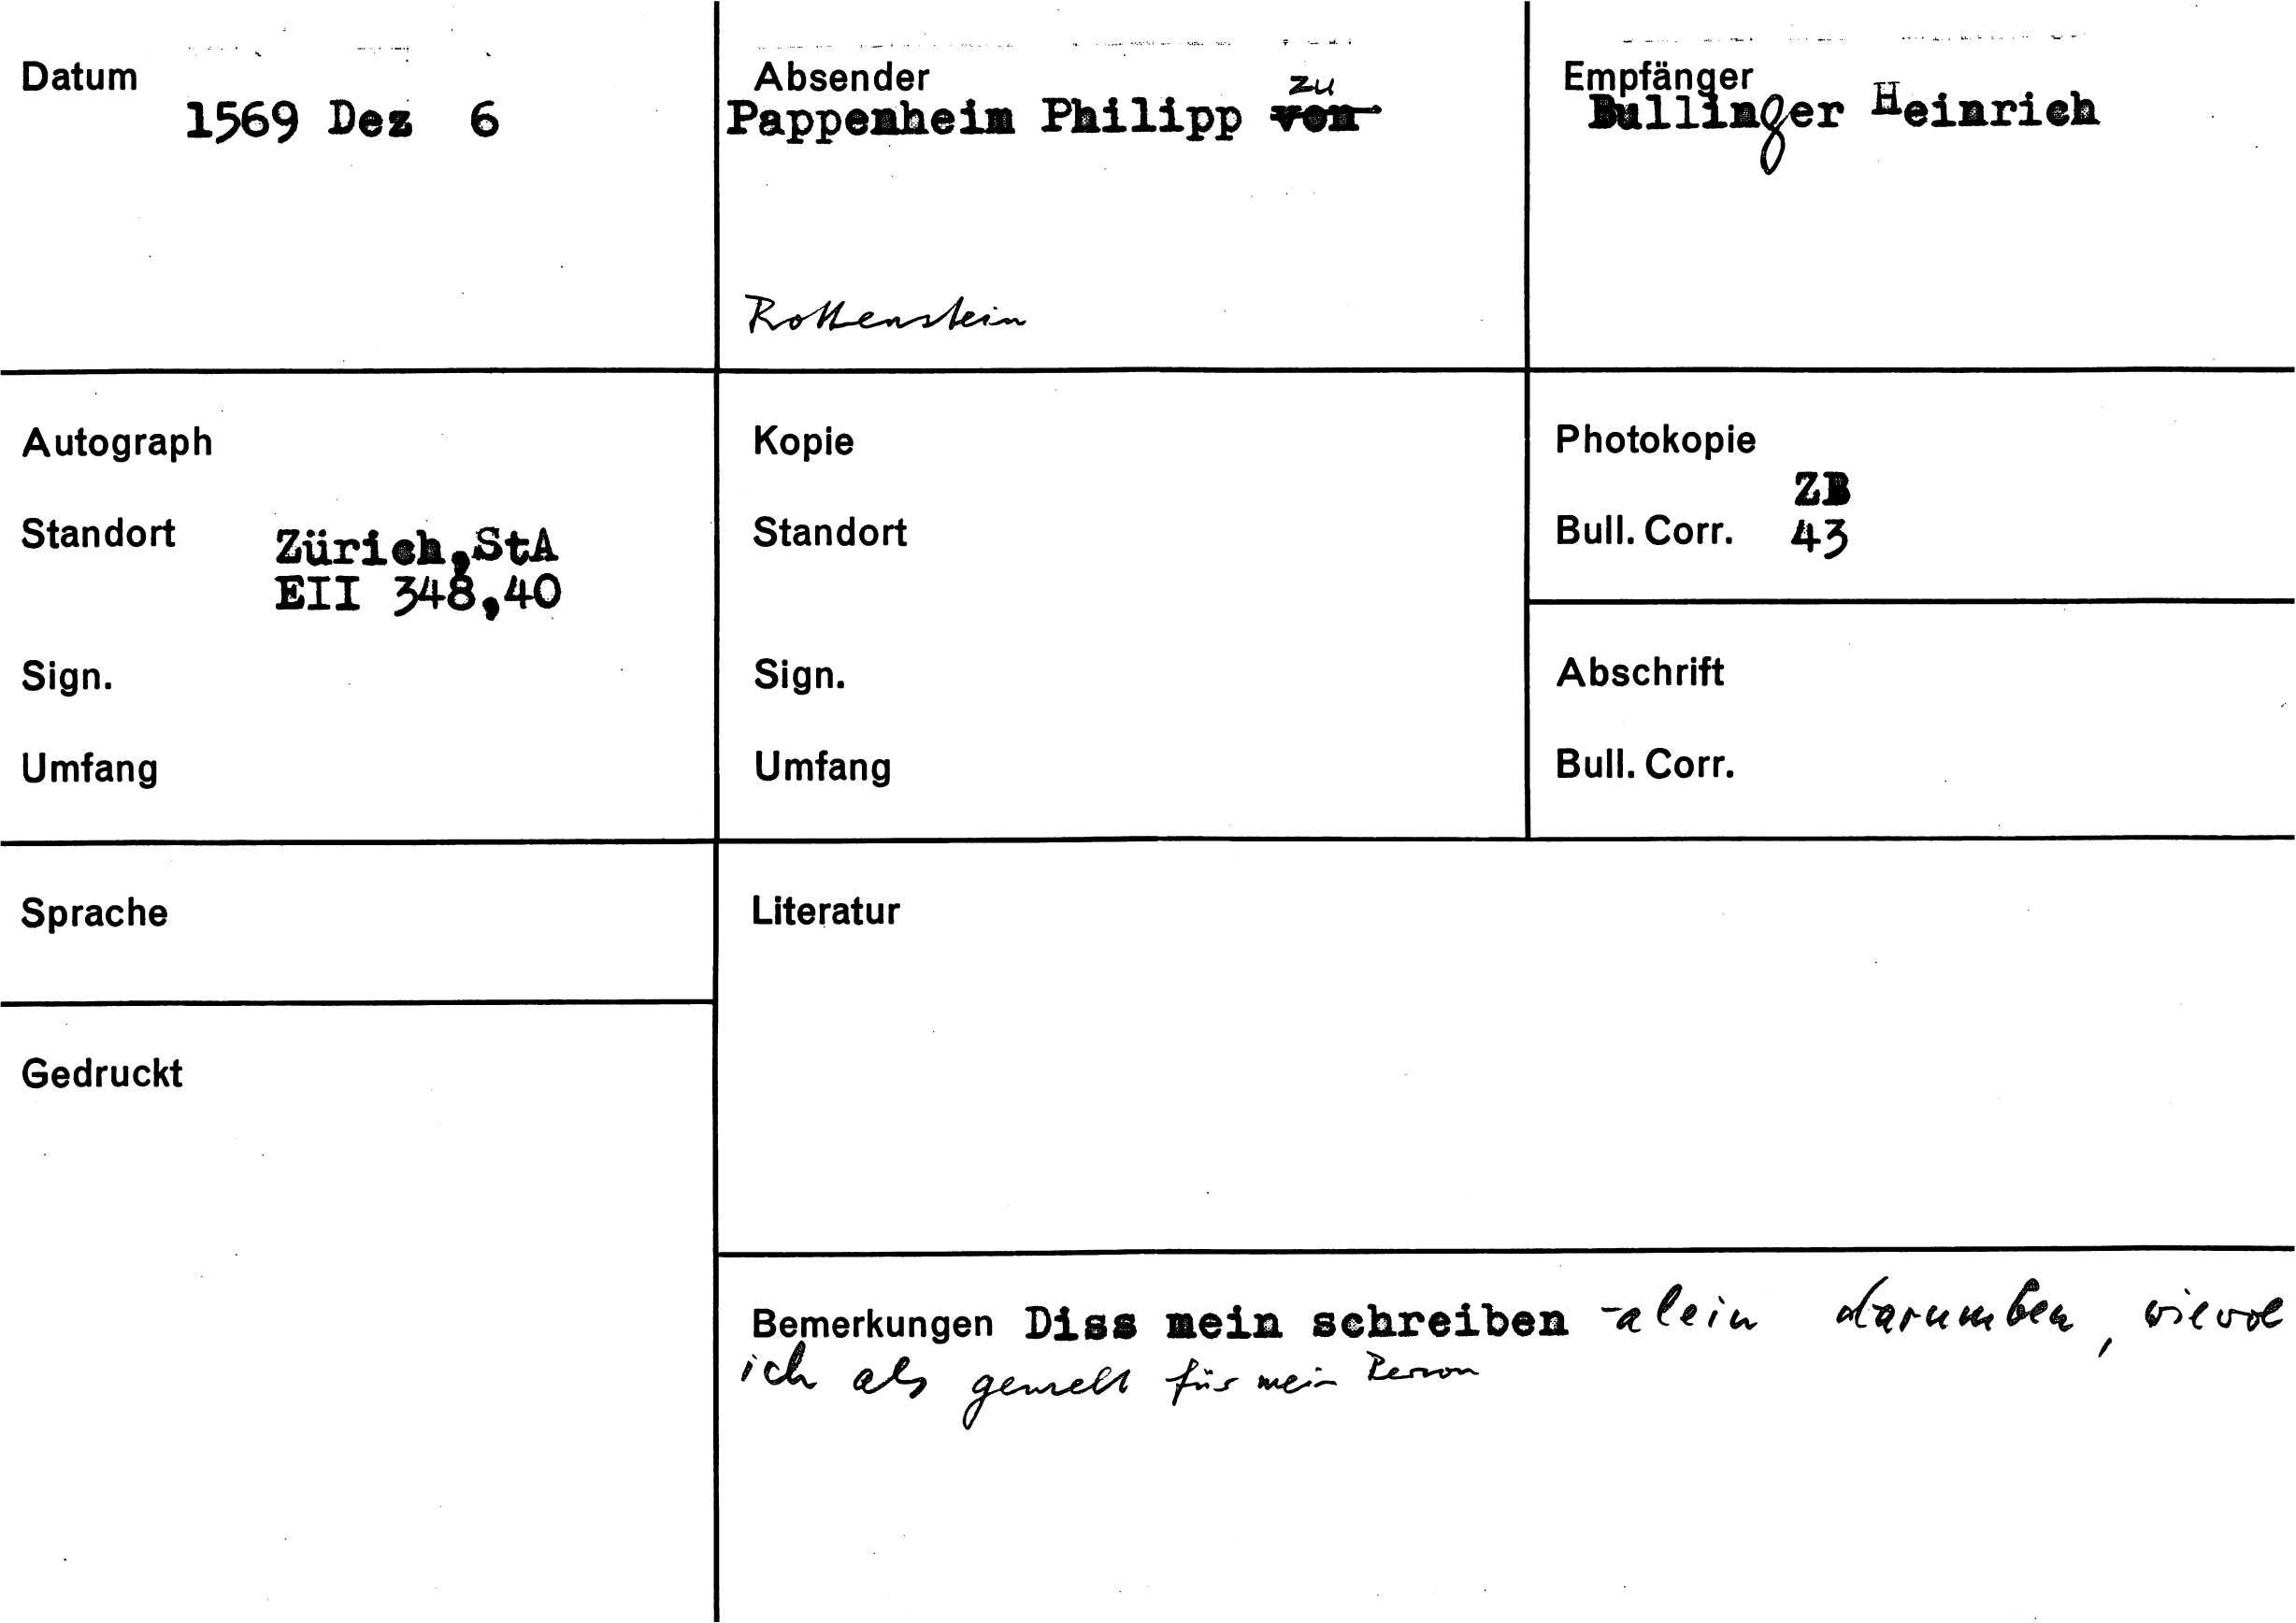 Datum
1569 Dez 6
Absender
zu
Pappenheim Philipp von
Rottenstein
Empfänger
Bullinger Heinrich
Autograph
Standort Zürich,StA
EII 348,40
Sign.
Umfang
Kopie
Standort
Sign.
Umfang
Photokopie
ZB
Bull. Corr. 43
Abschrift
Bull. Corr.
Sprache
Gedruckt
Literatur
Bemerkungen Diss mein schreiben - alein darumben, wievol
ich als gemelt für mein Person